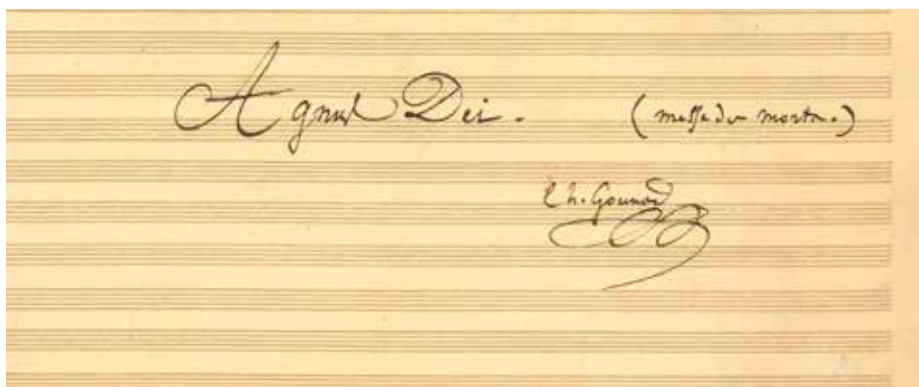 Agnus Dei. (messe des morts.)
Ch. Gounod